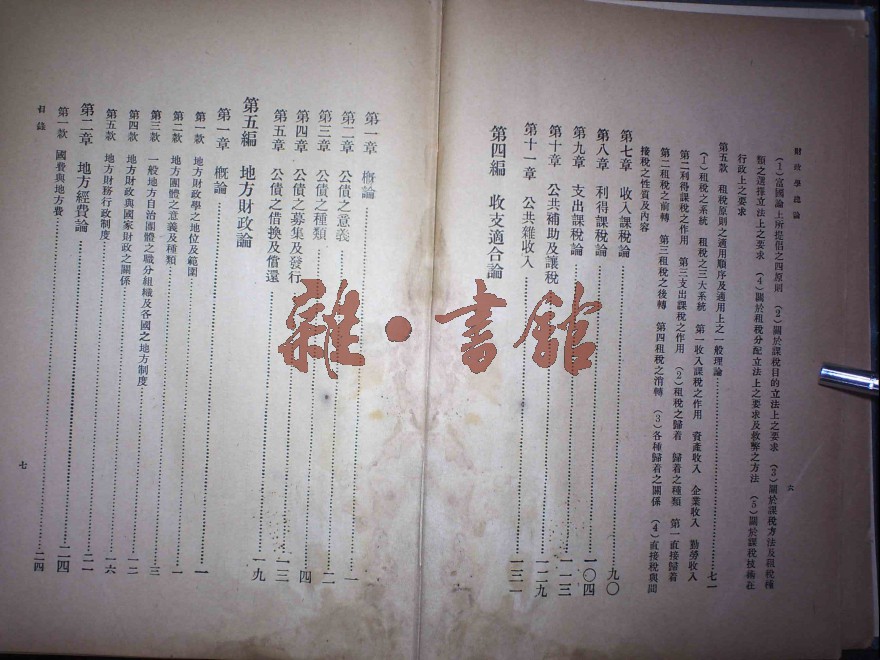 財政學總論
六
(1)富國論上所提倡之四原則 (2)關於課稅目的立法上之要求 (3)關於課稅方法及租稅種
類之選擇立法上之要求 (4)關於租稅分配立法上之要求及救弊之方法 (5)關於課稅技術在
行政上之要求
第五款 租稅原則之適用順序及適用上之一般理論 七一
(1)租稅之系統 租稅之三大系統 第一收入課稅之作用 資產收入 企業收入 勤勞收入
第二利得課稅之作用 第三支出課稅之作用 (2)租稅之歸着 歸着之種類 第一直接歸着
第二租稅之前轉 第三租稅之後轉 第四租稅之消轉 (3)各種歸着之關係 (4)直接稅與間
接稅之性質及內容
第七章 收入課稅論 九〇
第八章 利得課稅論 一〇四
第九章 支出課稅論 一一三
第十章 公共補助及讓稅 一二九
第十一章 公共雜收入 一三一
第四編 收支適合論
第一章 槪論 一
第二章 公債之意義 二
第三章 公債之種類 四
第四章 公債之募集及發行 一三
第五章 公債之借換及償還 一九
第五編 地方財政論
第一章 槪論 一
第一款 地方財政學之地位及範圍 一
第二款 地方團體之意義及種類 一
第三款 一般地方自治團體之職分組織及各國之地方制度 三
第四款 地方財政與國家財政之關係 一二
第五款 地方財務行政制度 一六
第二章 地方經費論 二一
第一款 國費與地方費 二四
目錄
七
雜·書館